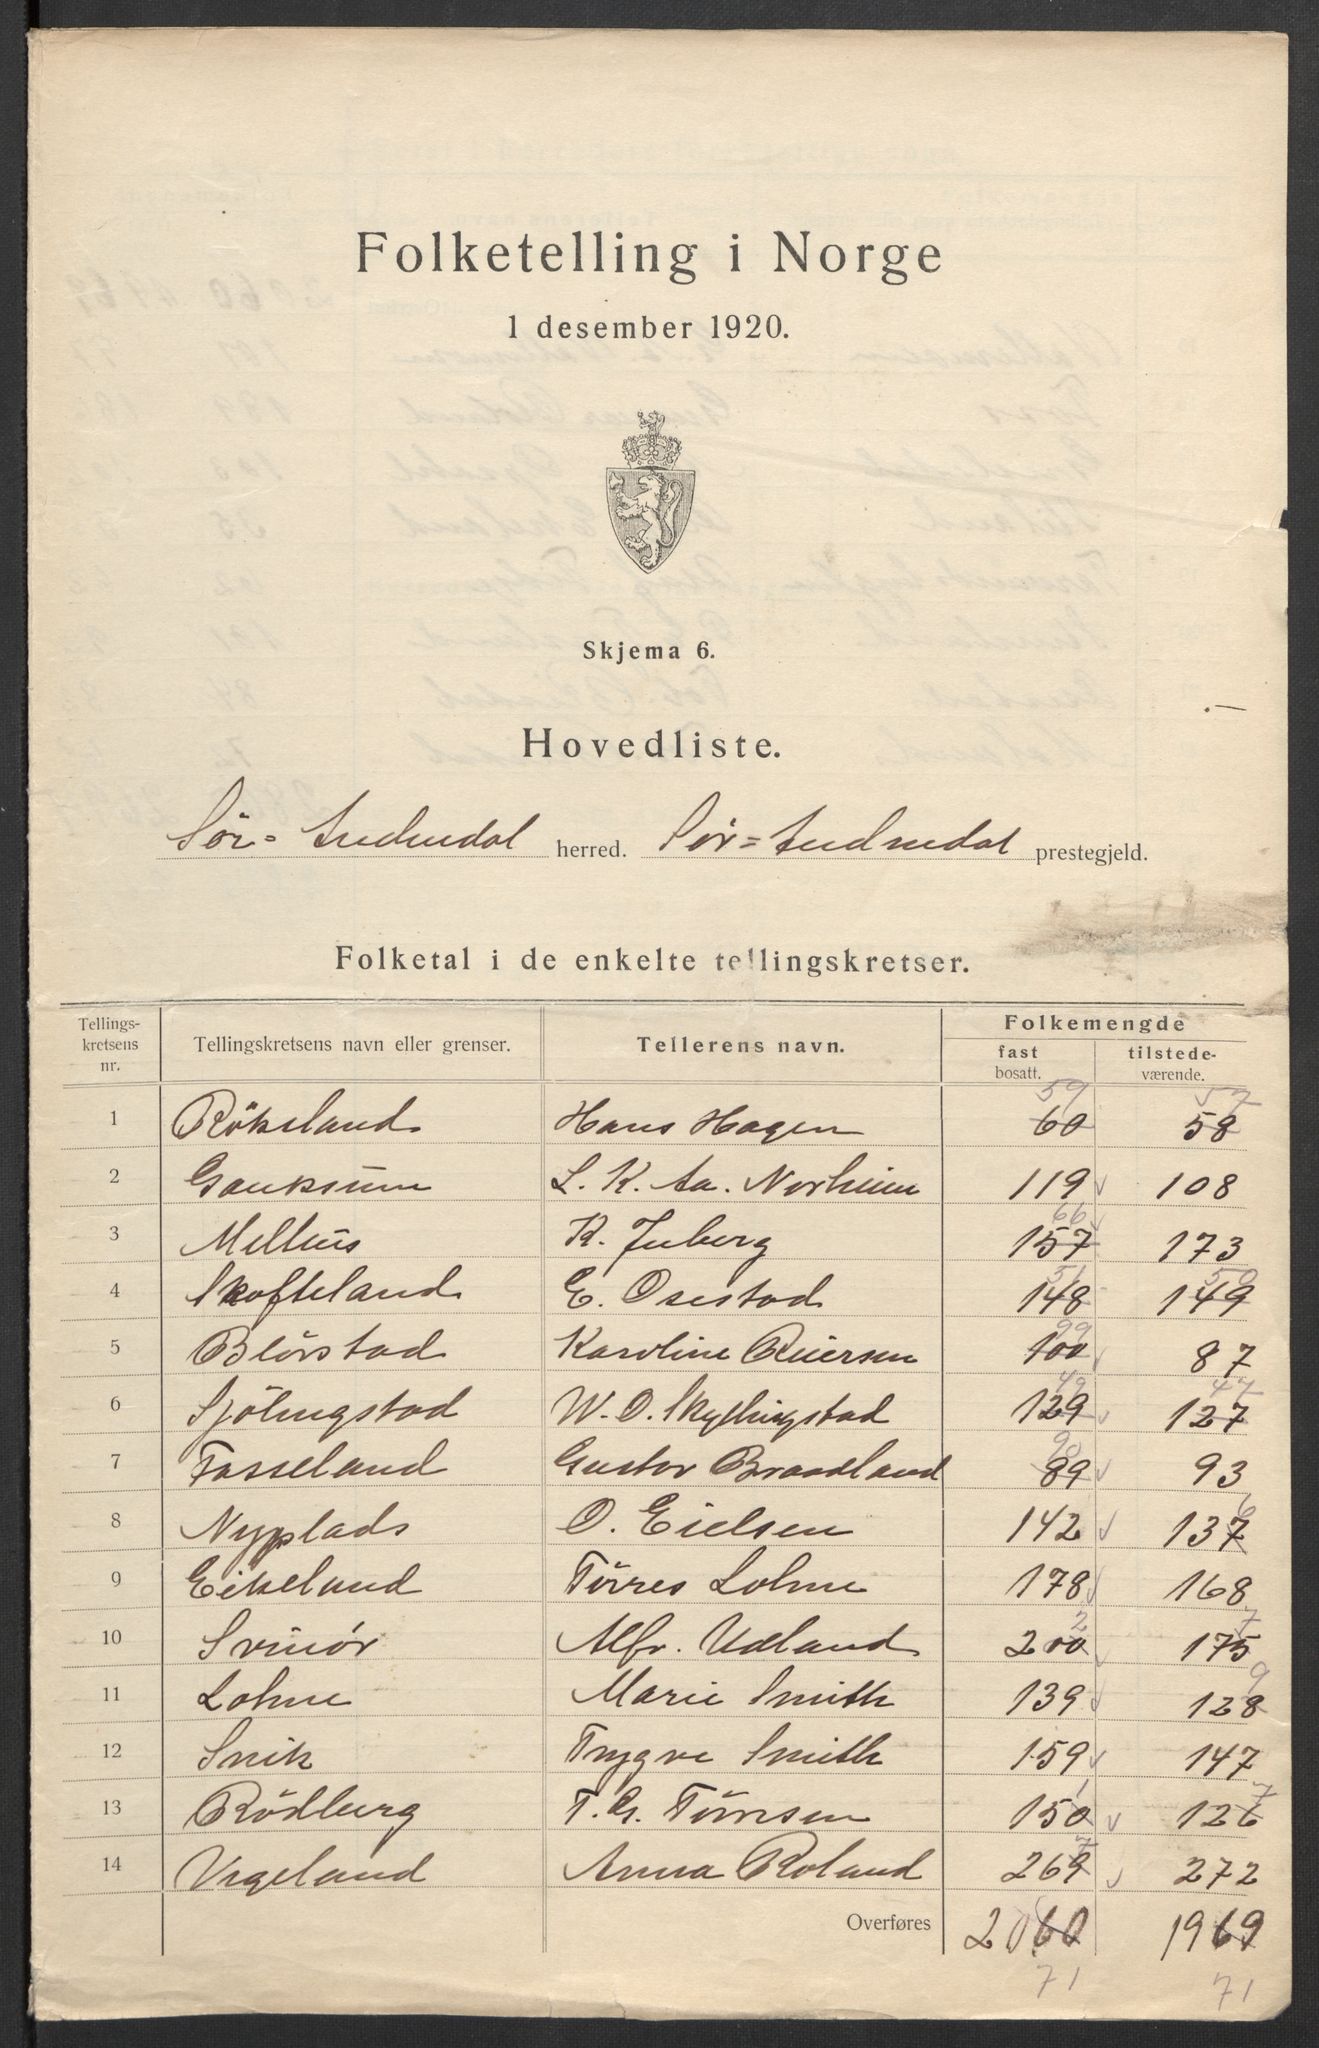 Folketelling i Norge
1 desember 1920.
Skjema 6.
Hovedliste.
Sör=Audnedal herred. Sör=Audnedal prestegjeld.
Folketal i de enkelte tellingskretser.
Tellings-kretsens nr. Tellingskretsens navn eller grenser. Tellerens navn. Folkemengde fast bosatt. tilstede-værende.
59 57
1 Rökeland Hans Hagen 60 58
2 Gauksum L. K. Aa. Norheim 119 108
66
3 Melhus K. Juberg 157 173
51 50
4 Skofteland E. Osestad 148 149
99
5 Blörstad Karoline Reiersen 100 87
49 47
6 Sjölingstad W. O. Skyllingstad 129 127
90
7 Fasseland Gustav Braadland 89 93
6
8 Nyplads O. Eielsen 142 137
9 Eikeland Törres Lohne 178 168
2 7
10 Svinör Alfr. Udland 200 175
9
11 Lohne Marie Smith 139 128
12 Snik Trygve Smith 159 147
1 7
13 Rödberg T. G. Tönnsen 150 126
7
14 Vigeland Anna Roland 269 272
Overføres 2060 1969
71 71